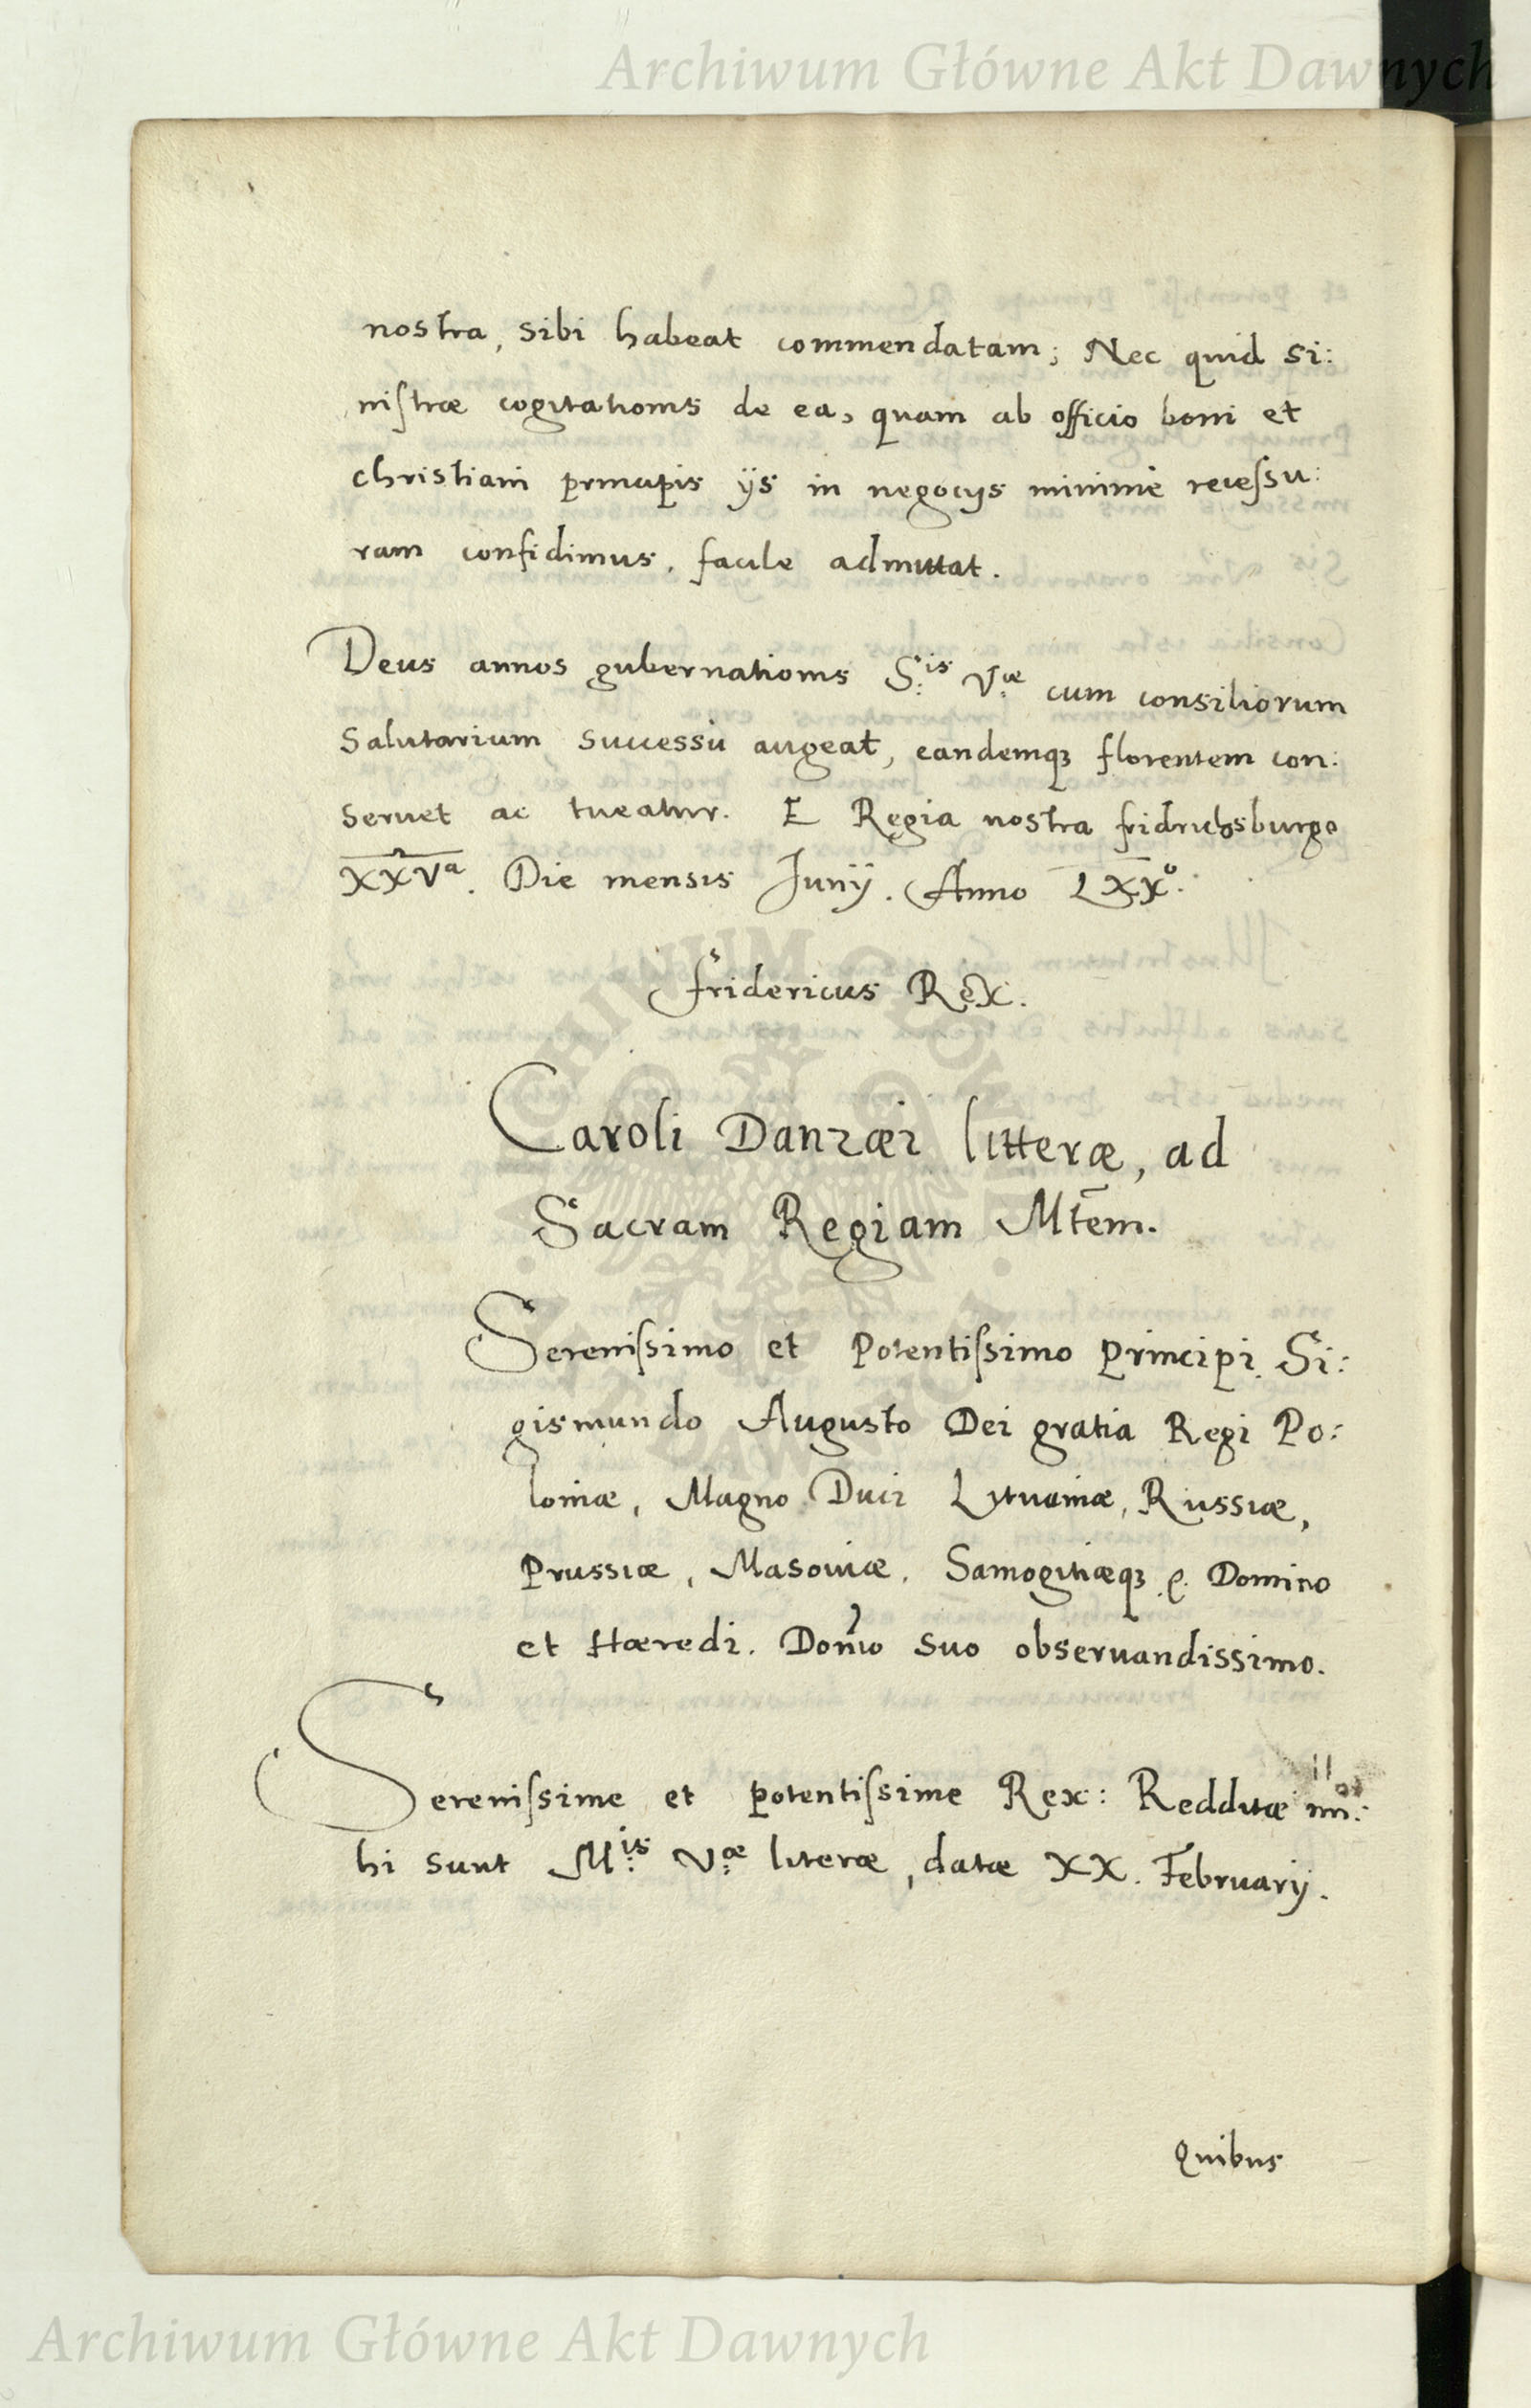 Archiwum Główne Akt Dawnych
nostra, sibi habeat commendatam; Nec quid si:
niſtræ cogitationis de ea, quam ab officio boni et
christiani principis ijs in negocijs minimè receſsu:
ram confidimus, facile admittat.
Deus annos gubernationis S:is V:æ cum consiliorum
salutarium successu augeat, eandemqꝫ florentem con:
seruet ac tueatur. E Regia nostra fridrichsburgo
XXVa. Die mensis Junij. Anno LXXo.
fridericus Rex.
Caroli Danzæi litteræ, ad
Sacram Regiam Mtem.
Sereniſsimo et Potentiſsimo Principi Si:
gismundo Augusto Dei gratia Regi Po:
loniæ, Magno Duci Lytuaniæ, Russiæ,
Prussiæ, Masoviæ, Samogitiæqꝫ Domino
et Hæredi. Domo suo obseruandissimo.
Sereniſsime et potentiſsime Rex: Redditæ mi:
hi sunt M:is V:æ literæ, datæ XX. Februarij.
Quibus
Archiwum Główne Akt Dawnych